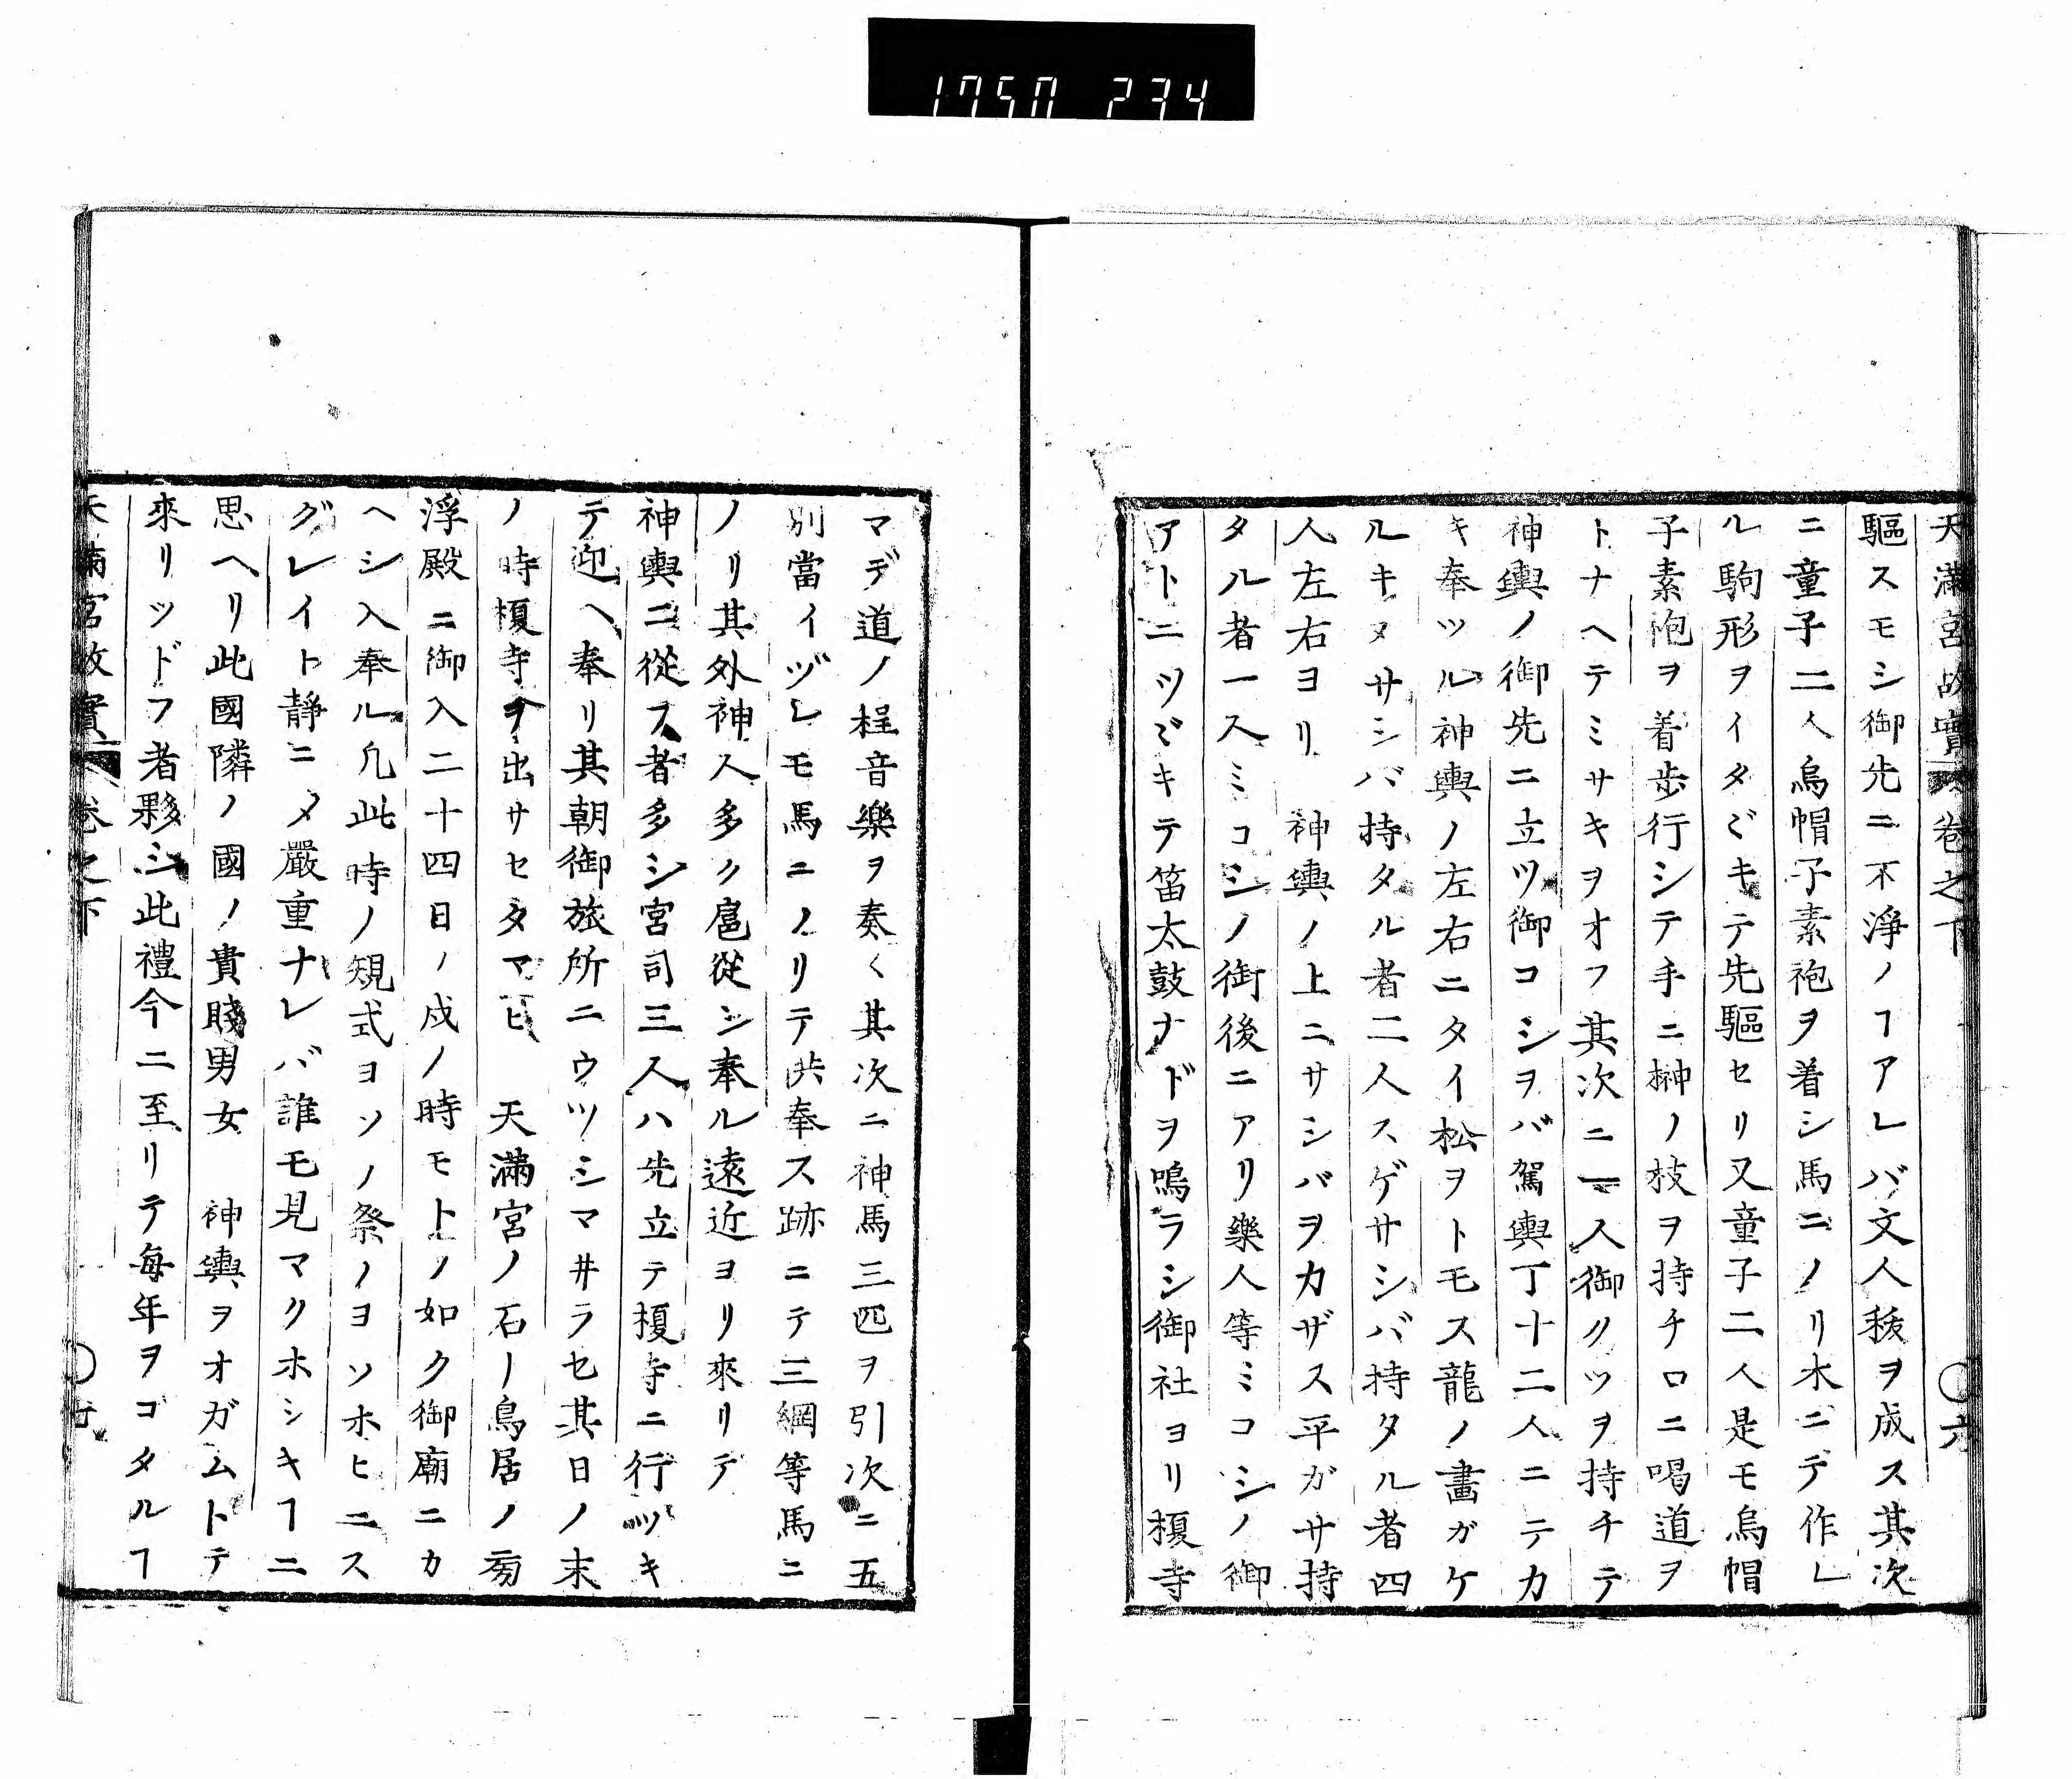 1750 234
天滿宮故實 卷之下 ○六
驅スモシ御先ニ不淨ノヿアレバ文人秡ヲ成ス其次
ニ童子二人烏帽子素袍ヲ着シ馬ニノリ木ニテ作レ
ル駒形ヲイタヾキテ先驅セリ又童子二人是モ烏帽
子素袍ヲ着歩行シテ手ニ榊ノ枝ヲ持チ口ニ喝道ヲ
トナヘテミサキヲオフ其次ニ一人御クツヲ持チテ
神輿ノ御先ニ立ツ御コシヲバ駕輿丁十二人ニテカ
キ奉ツル神輿ノ左右ニタイ松ヲトモス龍ノ畫ガケ
ルキヌサシバ持タル者二人スゲサシバ持タル者四
人左右ヨリ　神輿ノ上ニサシバヲカザス平ガサ持
タル者一人ミコシノ御後ニアリ樂人等ミコシノ御
アトニツヾキテ笛太鼓ナドヲ鳴ラシ御社ヨリ榎寺
マデ道ノ程音樂ヲ奏ク其次ニ神馬三匹ヲ引次ニ五
別當イヅレモ馬ニノリテ供奉ス跡ニテ三綱等馬ニ
ノリ其外神人多ク扈從シ奉ル遠近ヨリ來リテ
神輿ニ從フ者多シ宮司三人ハ先立テ榎寺ニ行ツキ
テ迎ヘ奉リ其朝御旅所ニウツシマヰラセ其日ノ末
ノ時榎寺ヲ出サセタマヒ　天滿宮ノ石ノ鳥居ノ旁
浮殿ニ御入二十四日ノ戍ノ時モトノ如ク御廟ニカ
ヘシ入奉ル凡此時ノ䂓式ヨソノ祭ノヨソホヒニス
グレイト靜ニメ嚴重ナレバ誰モ見マクホシキヿニ
思ヘリ此國隣ノ國ノ貴賤男女　神輿ヲオガムトテ
來リツドフ者夥シ此禮今ニ至リテ每年ヲコタルヿ
天滿宮故實 卷之下